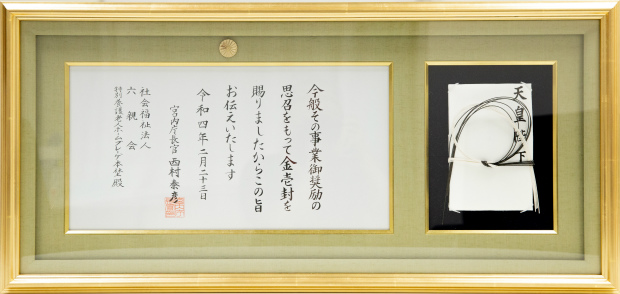 今般その事業御奨励の
思召をもって金壱封を
賜りましたからこの旨
お伝えいたします
令和四年二月二十三日
宮内庁長官 西村泰彦
社会福祉法人
六親会
特別養護老人ホームプレーゲ本埜 殿
天皇陛下